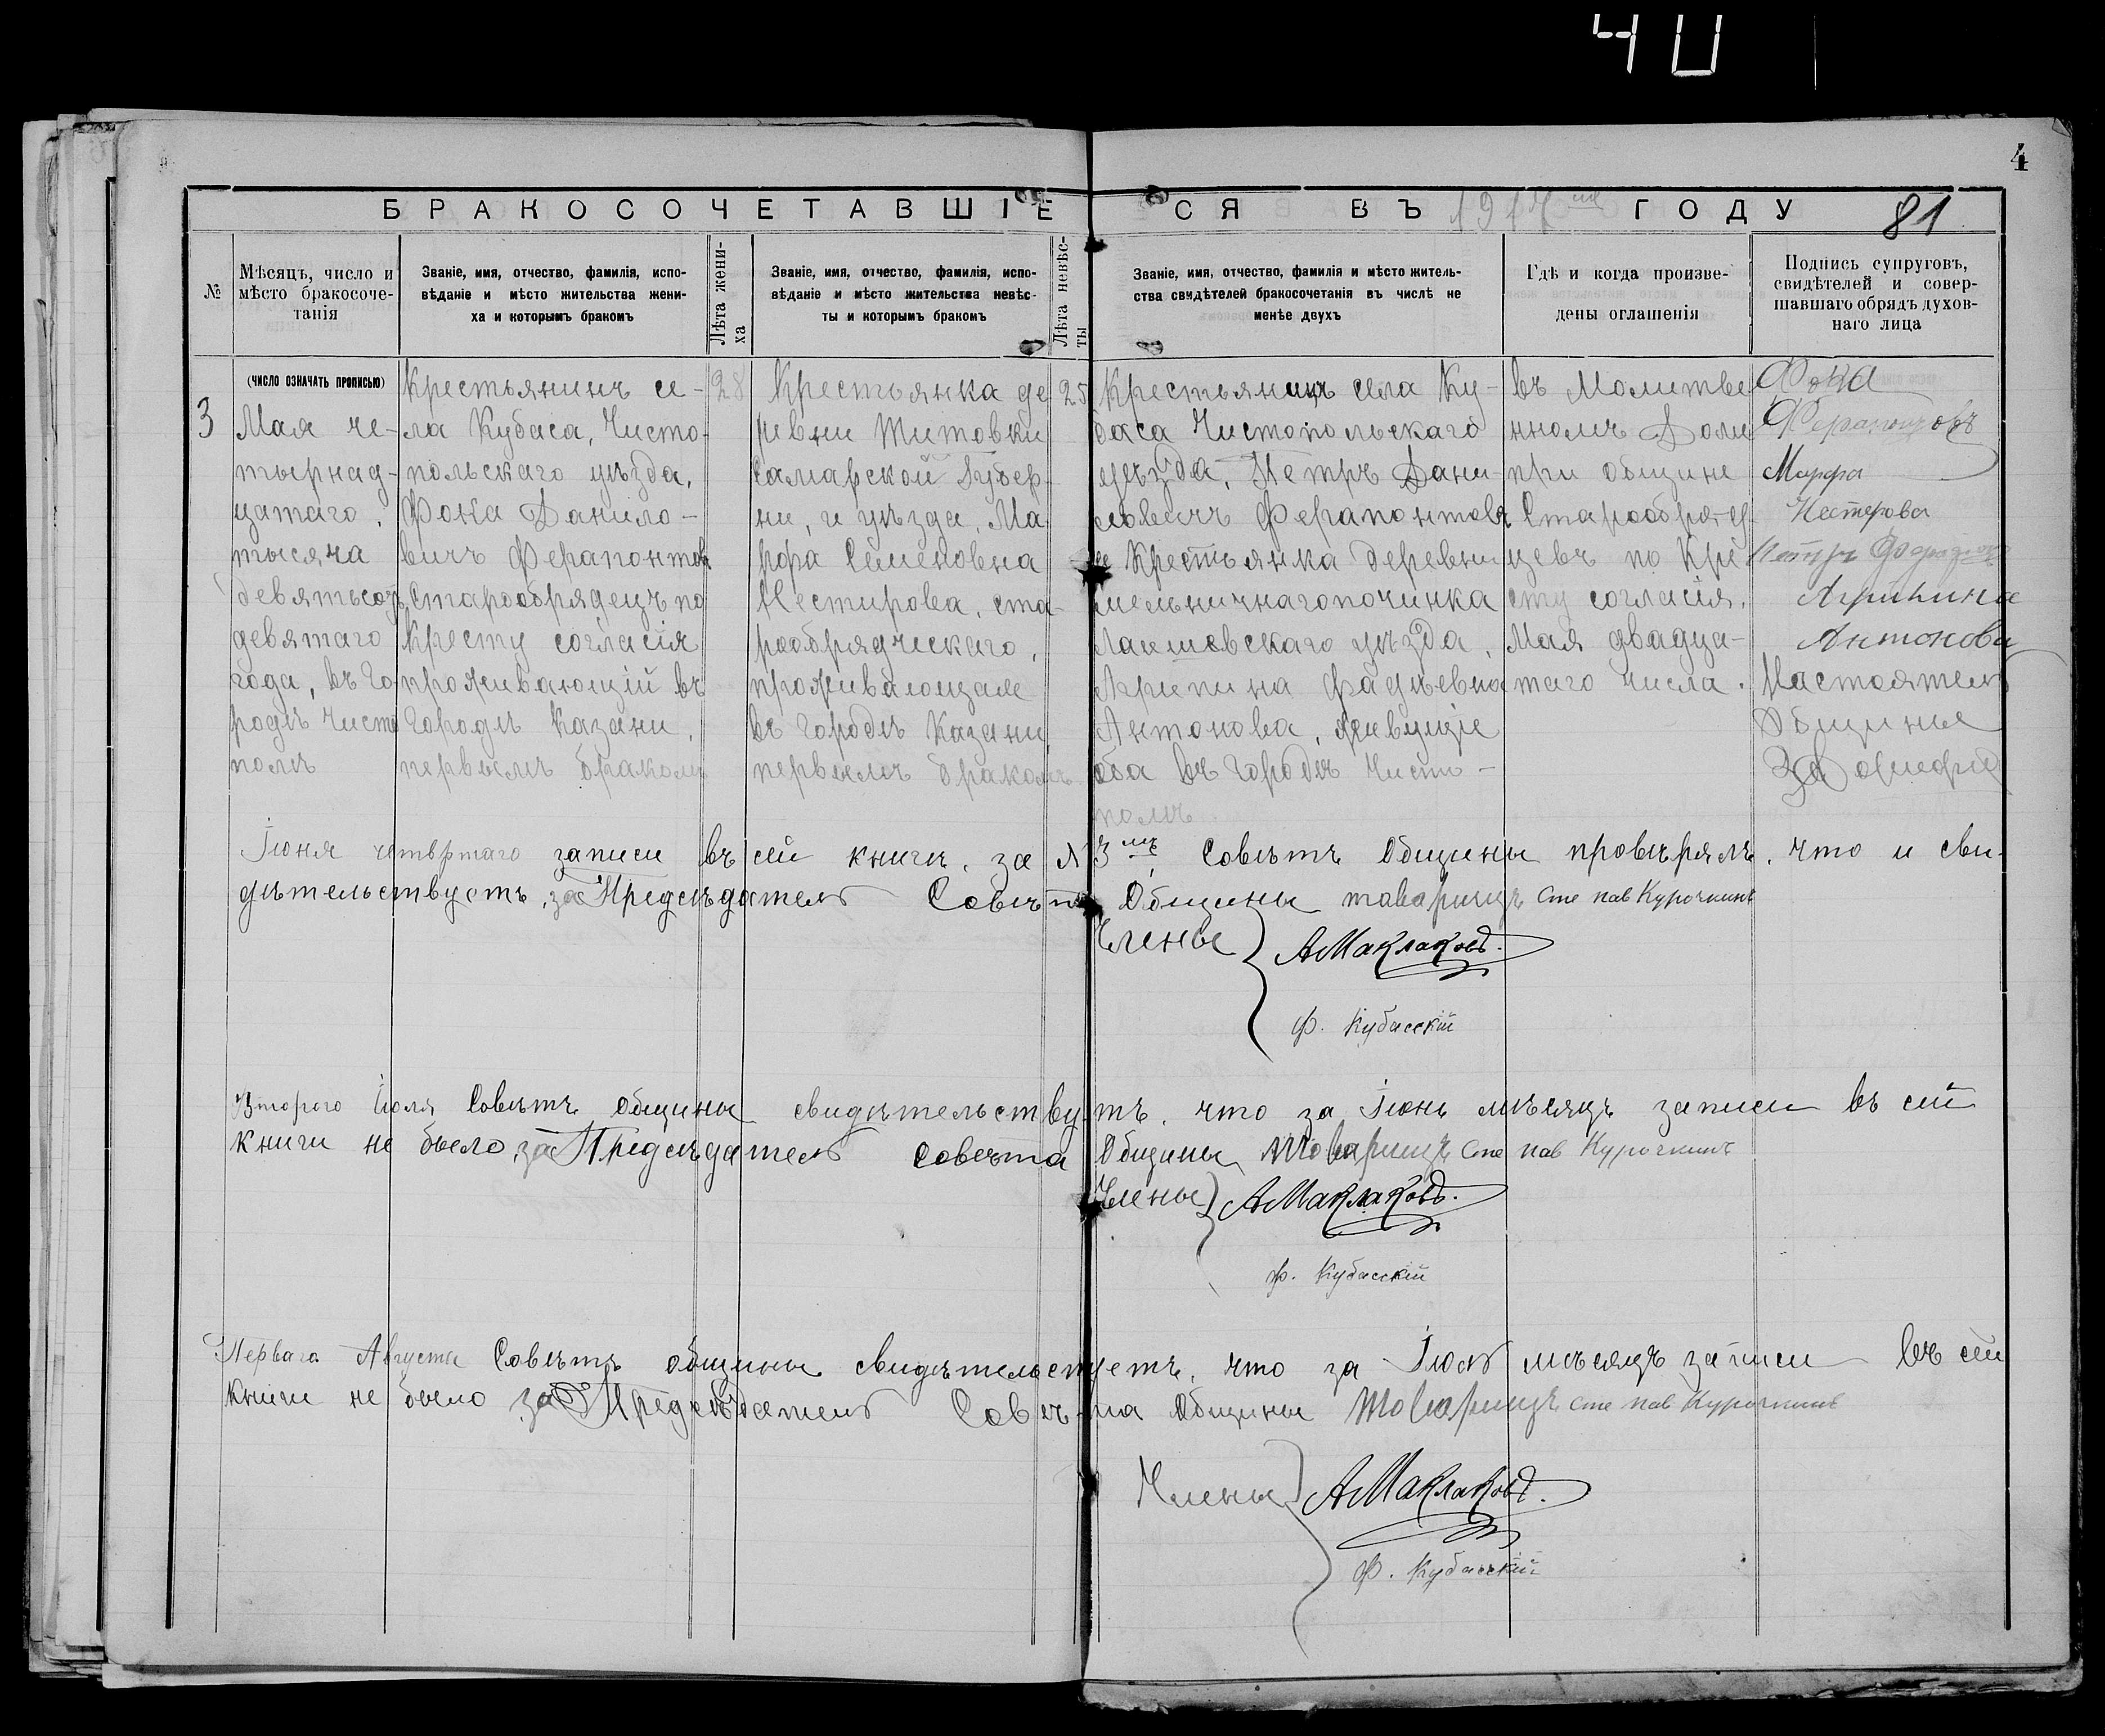 40
4
БРАКОСОЧЕТАВШІЕСЯ ВЪ ГОДУ
81
№
Мѣсяцъ, число и
мѣсто бракосоче-
танія
Званіе, имя, отчество, фамилія, испо-
вѣданіе и мѣсто жительства жени-
ха и которымъ бракомъ
Лѣта жени-
ха
Званіе, имя, отчество, фамилія, испо-
вѣданіе и мѣсто жительства невѣс-
ты и которымъ бракомъ
Лѣта невѣс-
ты
Званіе, имя, отчество, фамилія и мѣсто житель-
ства свидѣтелей бракосочетанія въ числѣ не
менѣе двухъ
Гдѣ и когда произве-
дены оглашенія
Подпись супруговъ,
свидѣтелей и совер-
шавшаго обрядъ духов-
наго лица
(ЧИСЛО ОЗНАЧАТЬ ПРОПИСЬЮ)
3
Мая че-
тырнад-
цатаго,
тысяча
девятьсотъ
девятаго
года, въ Го-
родѣ Чисто
полѣ
Крестьянинъ се-
ла Кубаса, Чисто-
польскаго уѣзда,
Фока Данило-
вичъ Ферапонтовъ
Старообрядецъ по
Кресту согласія
проживающій въ
Городѣ Казани,
первымъ бракомъ
28
Крестьянка де
ревни Титовки
Самарской Губер-
ни, и уѣзда, Ма
рфа Семеновна
Нестирова, ста-
рообрядческаго,
проживающае
въ Городѣ Казани,
первымъ бракомъ
25
Крестьянинъ села Ку-
баса Чистопольскаго
уѣзда, Петръ Дани-
ловичъ Ферапонтовъ
и Крестьянка деревни
мельничнагопочинка
Лаишевскаго уѣзда,
Агрипина Фадѣевна
Антонова, живущіе
оба въ Городѣ Чисто-
полѣ
въ Молитве
нномъ Доме
при общине
Старообряд
цевъ по Кре
сту согласія.
Мая двадца-
таго числа.
Фока
Ферапонтовъ
Марфа
Нестерова
Петръ
Агрипина
Антонова
Настоятель
Общины
Іюня четвртаго записи въ сей книги, за № 3мъ Совѣтъ Общины провѣрялъ, что и сви-
дѣтельствуетъ, за Предсѣдатель Совѣта Общины таварищъ Сте пав Курочкинъ
Члены АМаклаковъ.
Ф. Кубасскій
Второго Іюля Совѣтъ Общины свидѣтельствуетъ, что за Іюнь мѣсяцъ записи въ сей
книги не было, за Предсѣдатель Совѣта Общины Товарищъ Сте пав Курочкинъ
Члены АМаклаковъ.
Ф. Кубасскій
Перваго Августа Совѣтъ общины свидѣтельстуетъ, что за Іюль мѣсяцъ записи въ сей
книги не было за Предсѣдатель Совѣта Общины Товарищъ Сте пав Курочкинъ
Члены АМаклаковъ.
Ф. Кубасскій